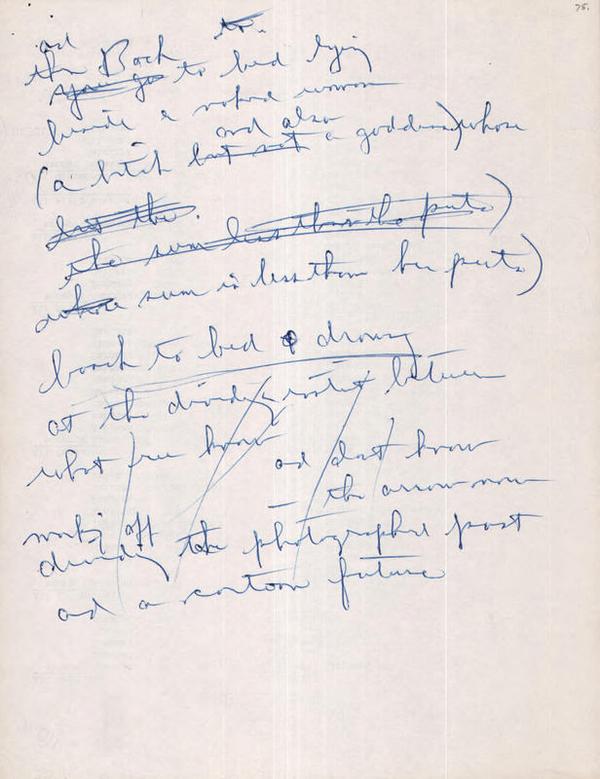 75.
and to.
then Back
you go to bed lying
beside a naked woman
and also
(a bitch but not a goddess) whose
but the
the sum less than the parts)
whose sum is less than her parts)
back to bed & drowsy
at the between
what you know
and don't know
— the arrow now
off
dividing the photographed past
and a cartoon future